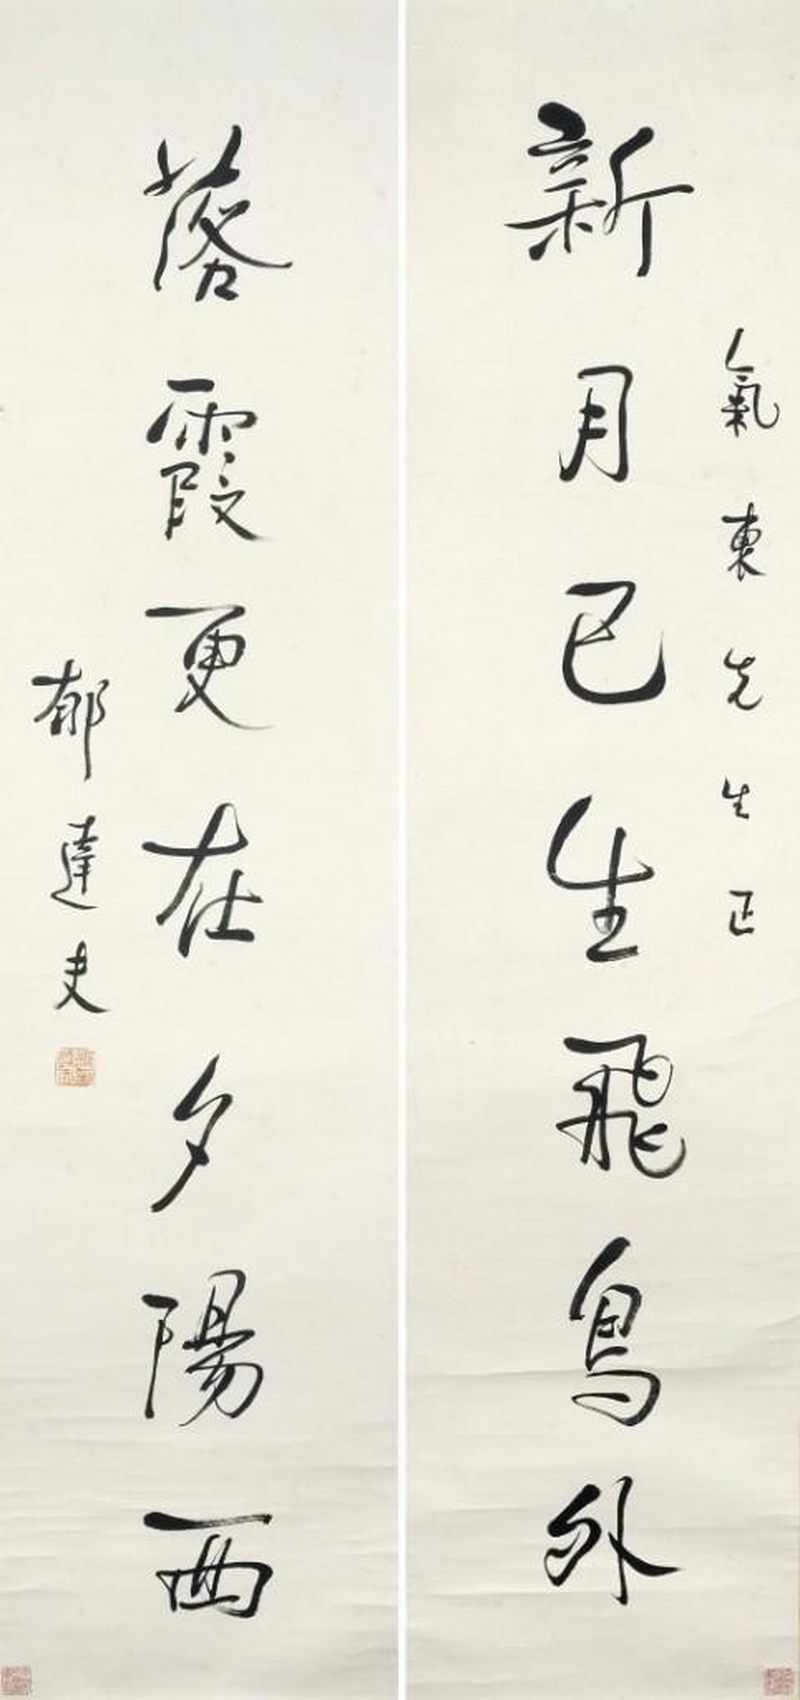 氣東先生正
新月已生飛鳥外
落霞更在夕陽西
郁達夫